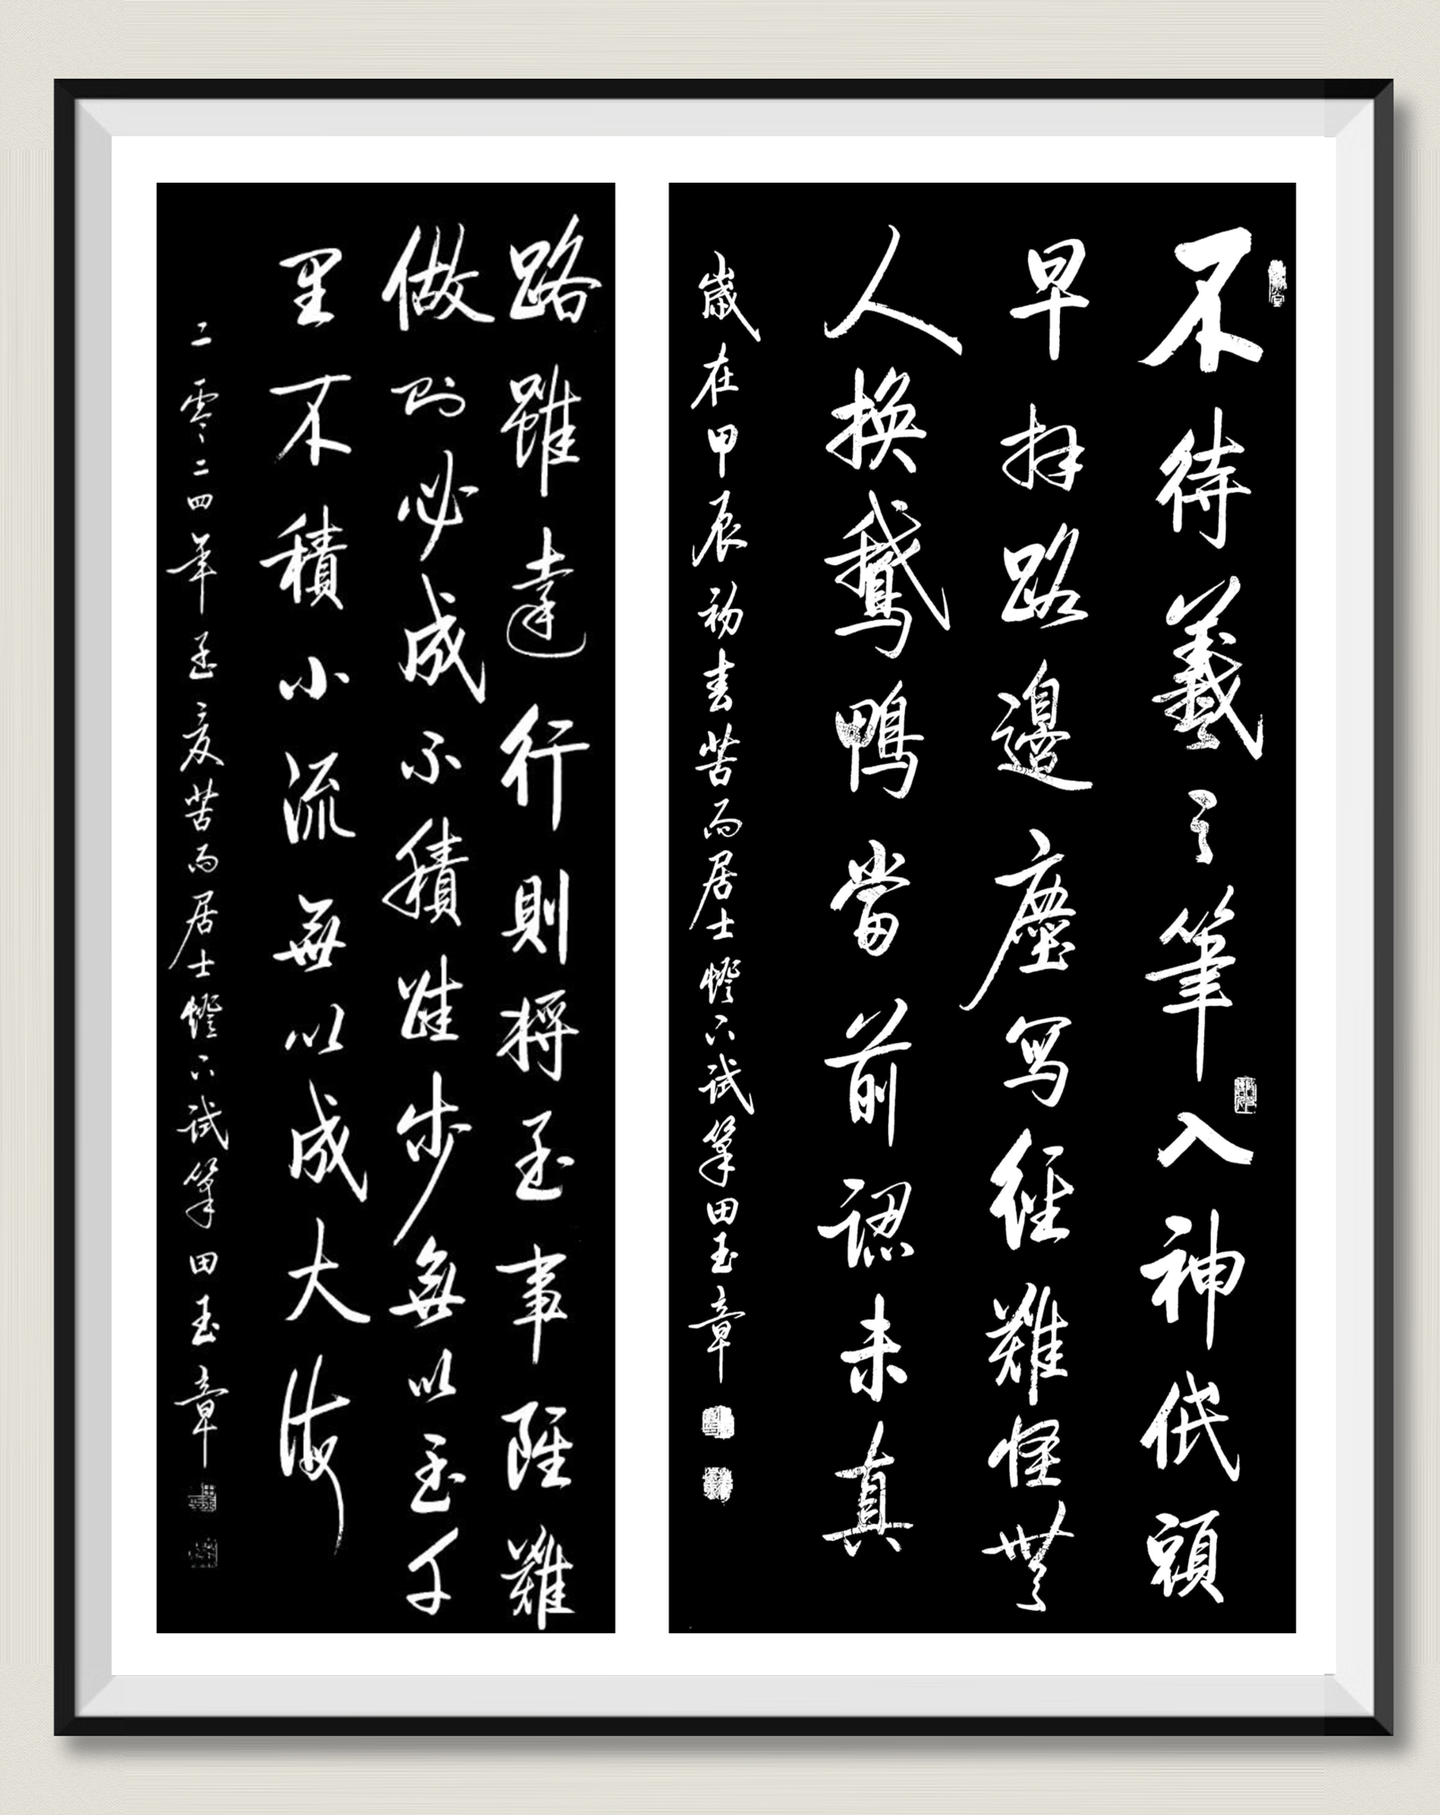 不待羲之筆入神低頭
早拜路邊塵寫經難怪無
人換鵝鴨當前認未真
歲在甲辰初春苦雨居士燈下試筆田玉章
路雖遠行則將至事雖難
做則必成不積跬步無以至千
里不積小流無以成大海
二零二四年孟夏苦雨居士燈下試筆田玉章